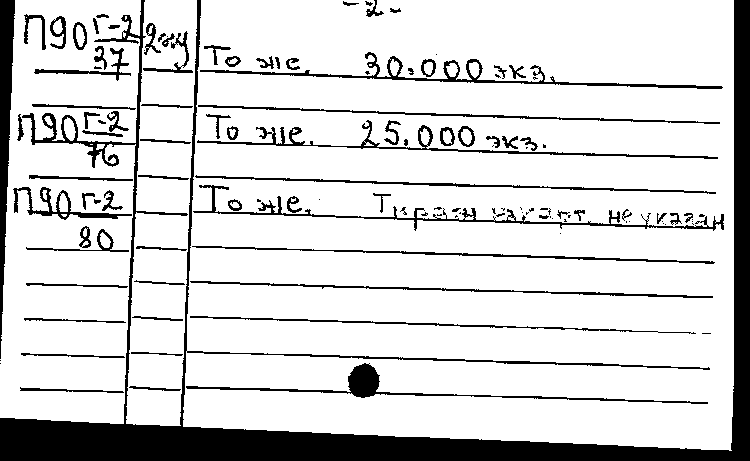 -2-
П90 Г-2/37 2жу То же. 30.000 экз.
П90 Г-2/76 То же. 25.000 экз.
П90 Г-2/80 То же. Тираж не указан